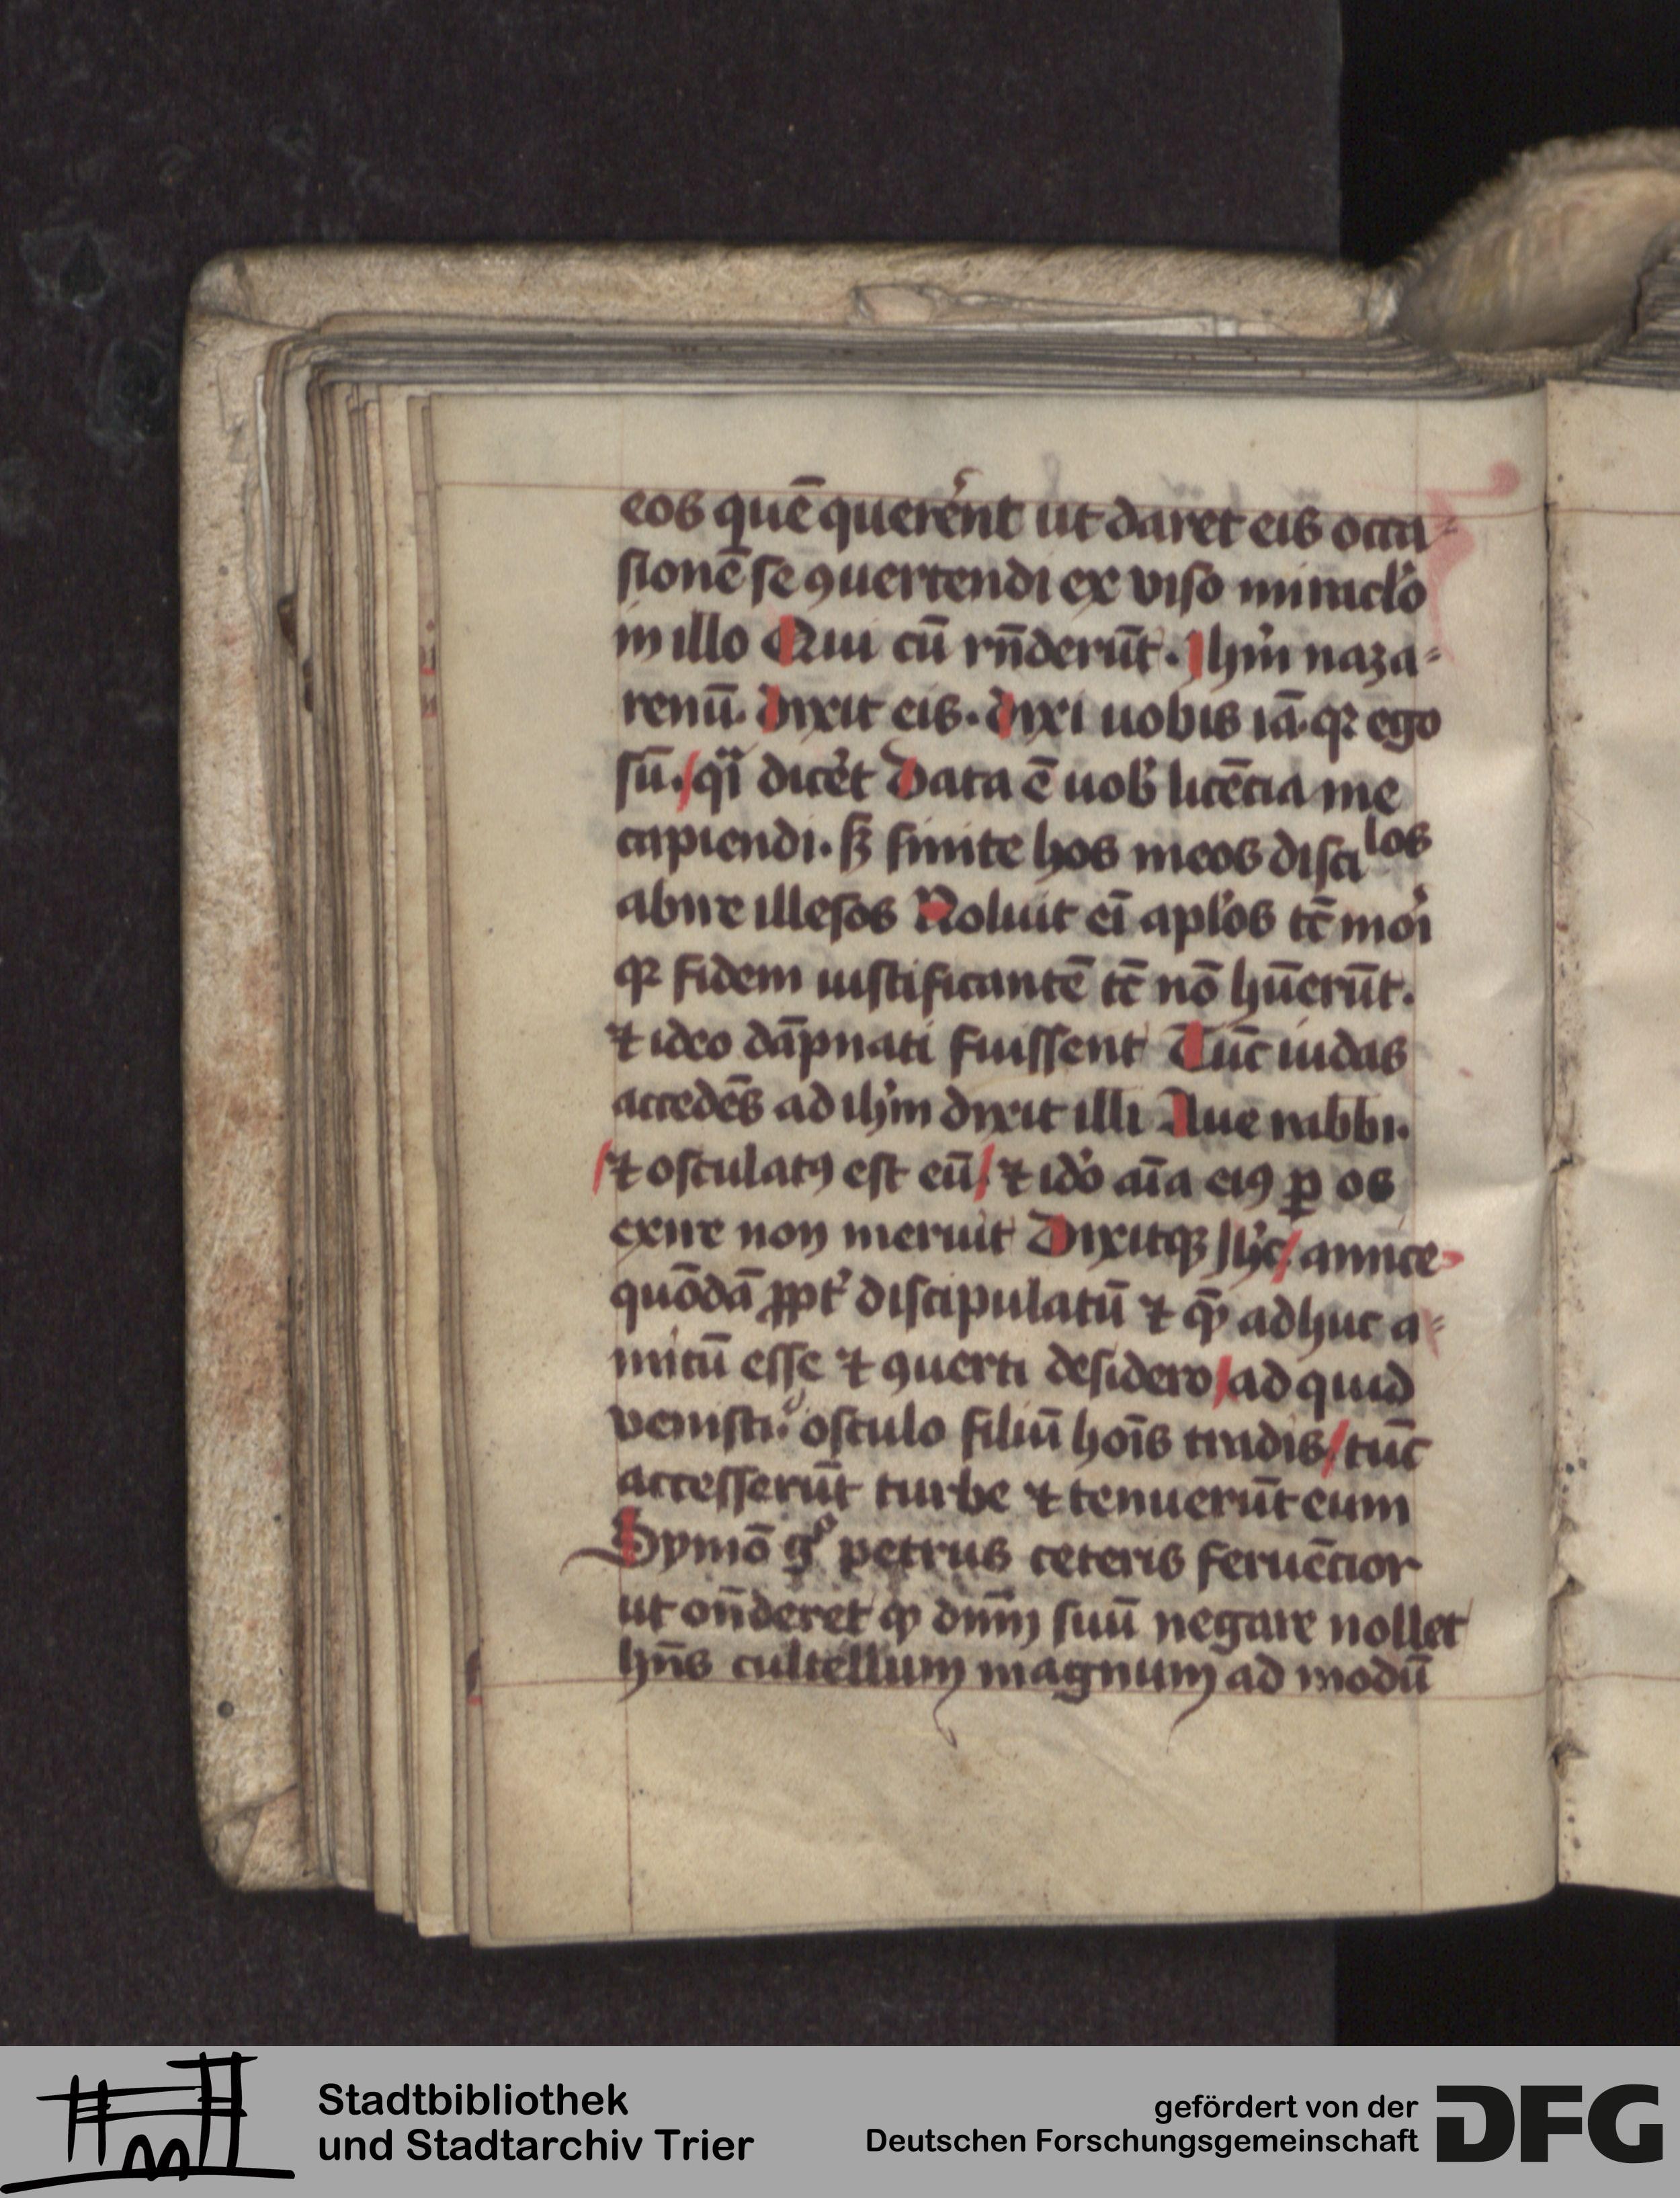 eos quē querēnt ut daret eis occa⸗
sionē se ꝯuertendi ex viso miraclo
in illo Qui cū rn̄derūt. Jhm̄ naza⸗
renū. Dixit eis. Dixi uobis iā. qꝛ ego
sū. / qͣi dicēt Data ē uob̾ licēcia me
capiendi. sꝫ sinite hos meos disci los
abire illesos Noluit eī aplos tc̄ moī
qꝛ fidem iustificantē tc̄ nō hūerūt.
⁊ ideo dāpnati fuissent Tūc iudas
accedēs ad ihm̄ dixit illi Aue rabbi.
/ ⁊ osculatꝰ est eū / ⁊ ido aīa eiꝰ ꝑ os
exire non meruit Dixitqꝫ Jhc / amice
quōdā ꝓpt̾ discipulatū ⁊ qē adhuc a⸗
micū esse ⁊ ꝯuerti desidero / ad quid
venisti. osculo filiū hoīs tradis / tūc
accesserūt turbe ⁊ tenuerūt eum
Symō gͦ petrus ceteris feruēcior
ut on̄deret ꝙ dnm̄ suū negare nollet
hn̄s cultellum magnum ad modū
Stadtbibliothek
und Stadtarchiv Trier
gefördert von der
Deutschen Forschungsgemeinschaft
DFG